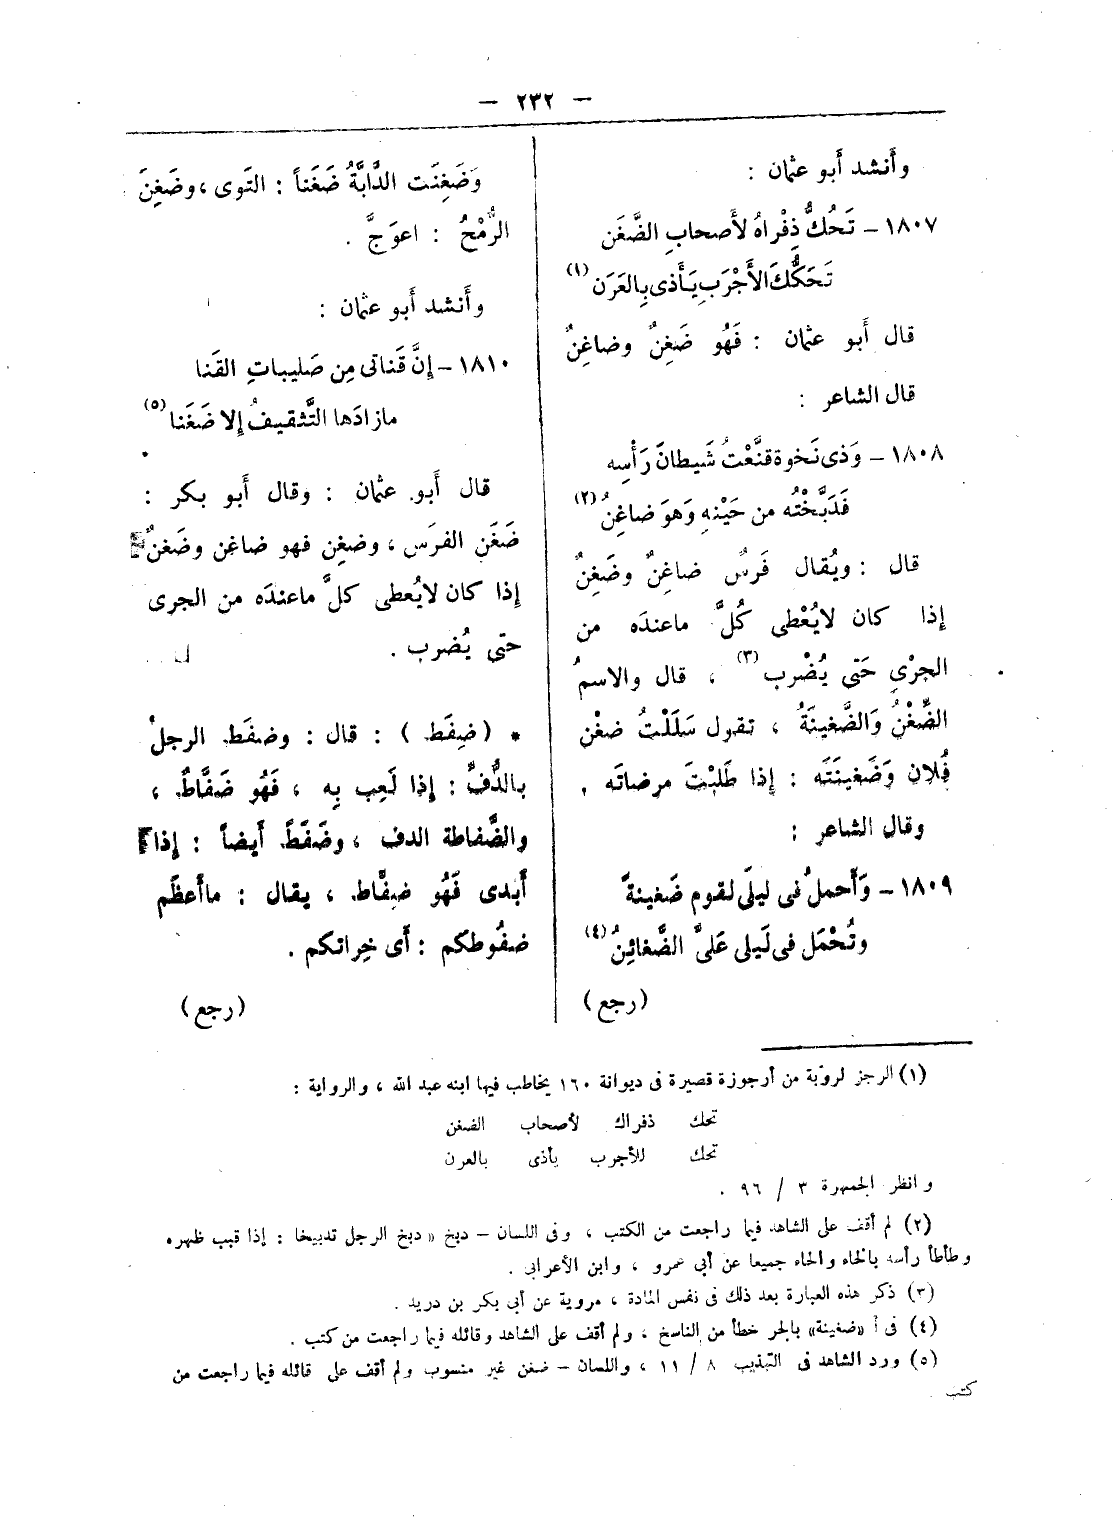 — ٢٣٢ —
وأَنشد أَبو عثمان :
١٨٠٧ – تَحُكُّ ذِفْراهُ لأَصحابِ الضَّغَن
تَحَكُّكَ الأَجْرَبِ يَأْذى بِالعَرَن (١)
قال أَبو عثمان : فَهُو ضَغِنٌ وضاغِنٌ
قال الشاعر :
١٨٠٨ – وَذى نَخوة قنَّعْتُ شَيطانَ رَأْسِه
فَدَبَّخْتُه من حَيْنهِ وَهوَ ضاغِنُ (٢)
قال : ويُقال فَرسٌ ضاغِنٌ وضَغِنٌ
إذا كان لايُعْطى كُلَّ ماعندَه من
الجرْىِ حَتى يُضْرب (٣) ، قال والاسمُ
الضِّغْنُ وَالضَّغينَةُ ، تقول سَلَلْتُ ضغْن
فُلان وَضَغينَتَه : إذا طَلبْتَ مرضاتَه .
وقال الشاعر :
١٨٠٩ – وَأَحملُ فى ليلَى لقوم ضَغينةً
وتُحْمَل فى لَيلى عَلىَّ الضَّغائِنُ (٤)
(رجع)
وَضَغِنَت الدَّابَّةُ ضَغَناً : التَوى ، وضَغِنَ
الرُّمْحُ : اعوجَّ .
وأَنشد أَبو عثمان :
١٨١٠ – إنَّ قَناتى مِن صَليباتِ القَنا
مازادَها التَّثقيفُ إلا ضَغَنا (٥)
قال أَبو عثمان : وقال أَبو بكر :
ضَغَن الفرَس ، وضغِن فهو ضاغن وضَغنٌ
إذا كان لايُعطى كلَّ ماعندَه من الجرى
حتى يُضرب .
* (ضفَط) : قال : وضفَط الرجلُ
بالدُّفِّ : إذا لَعِب بِه ، فَهُو ضَفَّاطٌ ،
والضَّفاطة الدف ، وضَفَطَ أَيضاً : إذا
أَبدى فَهُو ضفَّاط ، يقال : ماأَعظَم
ضفُوطكم : أَى خِراتكم .
(رجع)
(١) الرجز لرؤبة من أرجوزة قصيرة فى ديوانة ١٦٠ يخاطب فيها ابنه عبد الله ، والرواية :
تحك ذفراك لأصحاب الضغن
تحك للأجرب يأذى بالعرن
وانظر الجمهرة ٣ / ٩٦ .
(٢) لم أقف على الشاهد فيما راجعت من الكتب ، وفى اللسان – دبخ « دبخ الرجل تدبيخا : إذا قبب ظهره
وطأطأ رأسه بالخاء والحاء جميعا عن أبى عمرو ، وابن الأعرابى .
(٣) ذكر هذه العبارة بعد ذلك فى نفس المادة ، مروية عن أبى بكر بن دريد .
(٤) فى أ «ضغينة» بالجر خطأ من الناسخ ، ولم أقف على الشاهد وقائله فيما راجعت من كتب .
(٥) ورد الشاهد فى التهذيب ٨ / ١١ ، واللسان – ضغن غير منسوب ولم أقف على قائله فيما راجعت من
كتب .